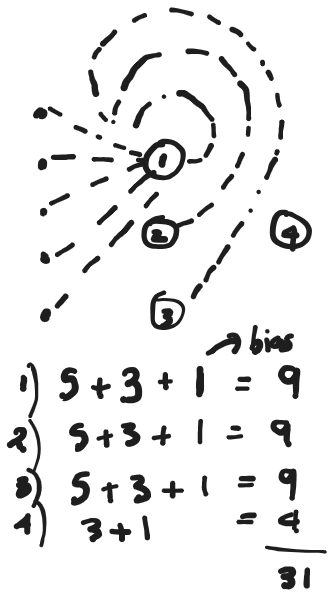 1
2
4
3
bias
1) 5 + 3 + 1 = 9
2) 5 + 3 + 1 = 9
3) 5 + 3 + 1 = 9
4) 3 + 1 = 4
31